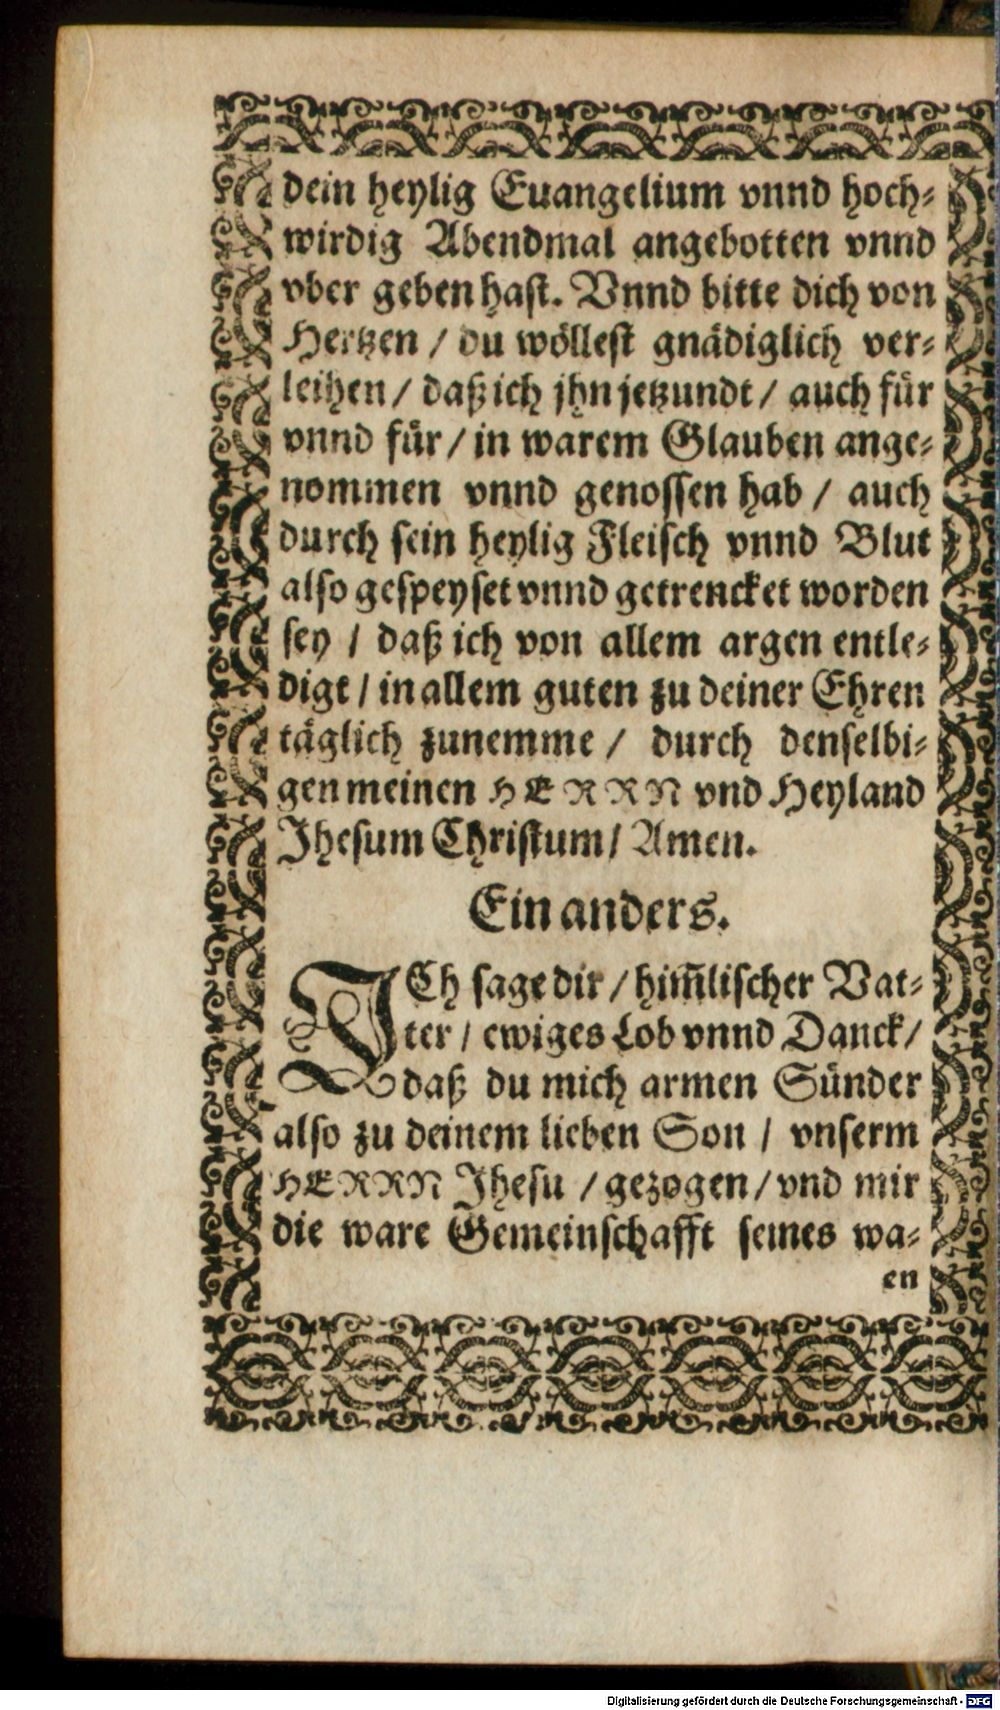 dein heylig Euangelium vnnd hoch⸗
wirdig Abendmal angebotten vnnd
vber geben hast. Vnnd bitte dich von
Hertzen / du wöllest gnädiglich ver⸗
leihen / daß ich jhn jetzundt / auch für
vnnd für / in warem Glauben ange⸗
nommen vnnd genossen hab / auch
durch sein heylig Fleisch vnnd Blut
also gespeyset vnnd getrencket worden
sey / daß ich von allem argen entle⸗
digt / in allem guten zu deiner Ehren
täglich zunemme / durch denselbi⸗
gen meinen HERRN vnd Heyland
Jhesum Christum / Amen.
Ein anders.
ICh sage dir / him̃lischer Vat⸗
ter / ewiges Lob vnnd Danck /
daß du mich armen Sünder
also zu deinem lieben Son / vnserm
HERRN Jhesu / gezogen / vnd mir
die ware Gemeinschafft seines wa⸗
en
Digitalisierung gefördert durch die Deutsche Forschungsgemeinschaft - DFG